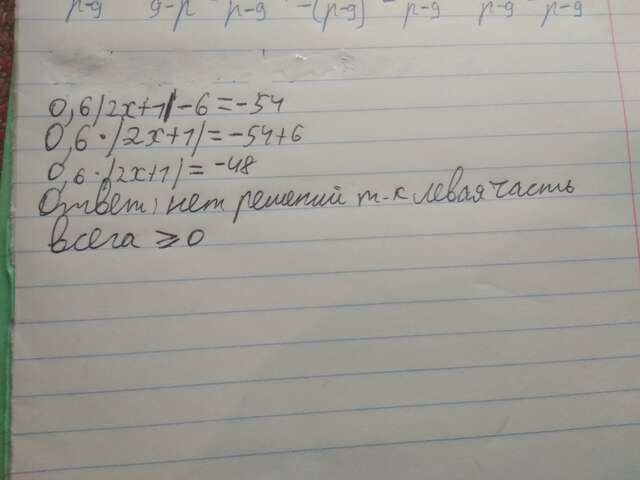 p-q q-p p-q -(p-q) p-q p-q p-q
0,6|2x+1|-6=-54
0,6·|2x+1|=-54+6
0,6·|2x+1|=-48
Ответ: нет решений т-к левая часть
всега ⩾0